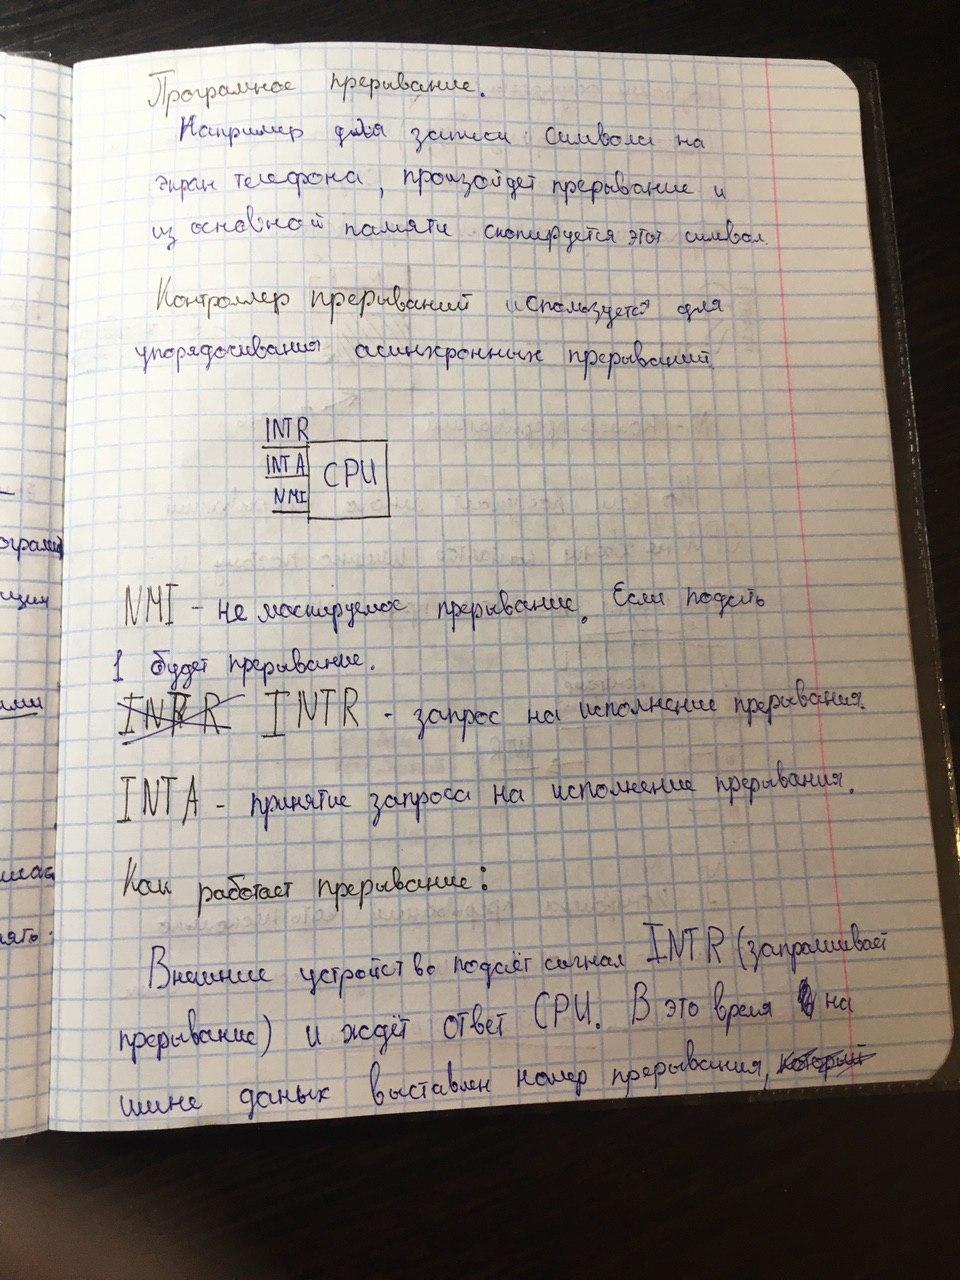 Програмное прерывание.
Например для записи символа на
экран телефона, произойдет прерывание и
из основной памяти скопируется этот символ.
Контроллер прерываний используется для
упорядочивания асинхронных прерываний.
INTR
INTA
NMI
CPU
NMI - не маскируемое прерывание. Если подать
1 будет прерывание.
INTR - запрос на исполнение прерывания.
INTA - принятие запроса на исполнение прерывания.
Как работает прерывание:
Внешнее устройство подаёт сигнал INTR (запрашивает
прерывание) и ждёт ответ CPU. В это время на
шине даных выставлен номер прерывания, который